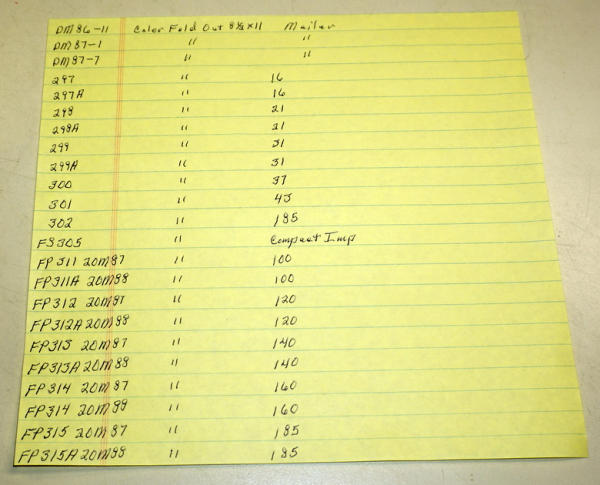 DM86-11 Color Fold Out 8½x11 Mailer
DM87-1 " "
DM87-7 " "
297 " 16
297A " 16
298 " 21
298A " 21
299 " 31
299A " 31
300 " 37
301 " 45
302 " 185
FS305 " Compact Imp
FP311 20M87 " 100
FP311A 20M88 " 100
FP312 20M87 " 120
FP312A 20M88 " 120
FP313 20M87 " 140
FP313A 20M88 " 140
FP314 20M87 " 160
FP314 20M88 " 160
FP315 20M87 " 185
FP315A 20M88 " 185